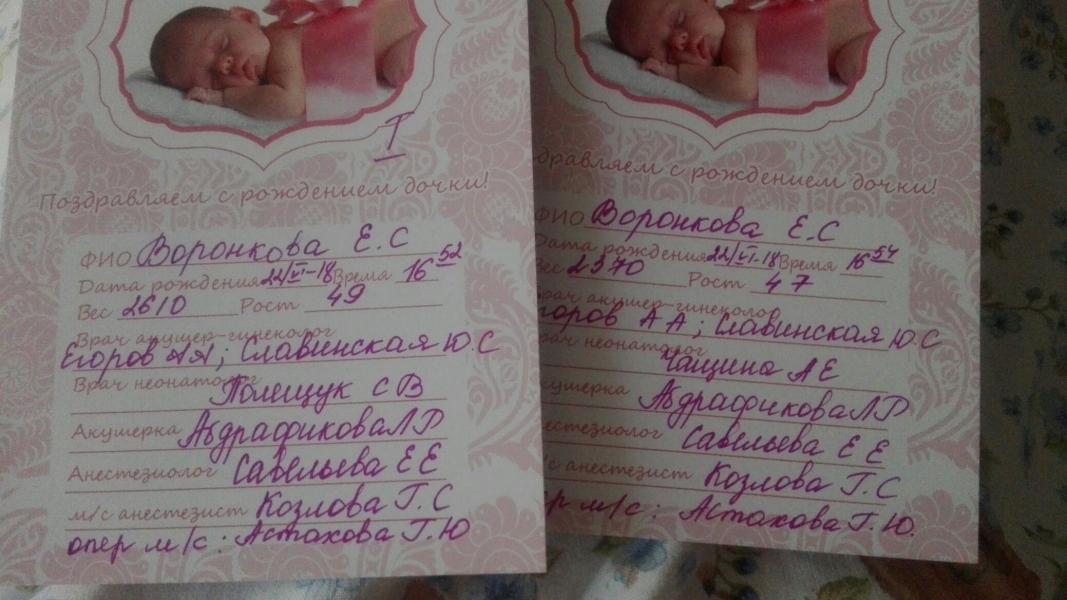 I
Поздравляем с рождением дочки!
ФИО Воронкова Е.С
Дата рождения 22/VI-18 Время 16 52
Вес 2610 Рост 49
Врач акушер-гинеколог
Егоров АА; Славинская Ю.С
Врач неонатолог Полещук С В
Акушерка Абдрафикова Л Р
Анестезиолог Савельева Е Е
м/с анестезист Козлова Г.С
опер м/с: Астахова Г.Ю
дравляем с рождением дочки!
ФИО Воронкова Е.С
Дата рождения 22/VI-18 Время 16 54
Вес 2370 Рост 47
рач акушер-гинеколог
горов А А; Славинская Ю.С
рач неонатолог Чащина А Е
кушерка Абдрафикова Л Р
естезиолог Савельева Е Е
с анестезист Козлова Г.С
р м/с: Астахова Г.Ю.